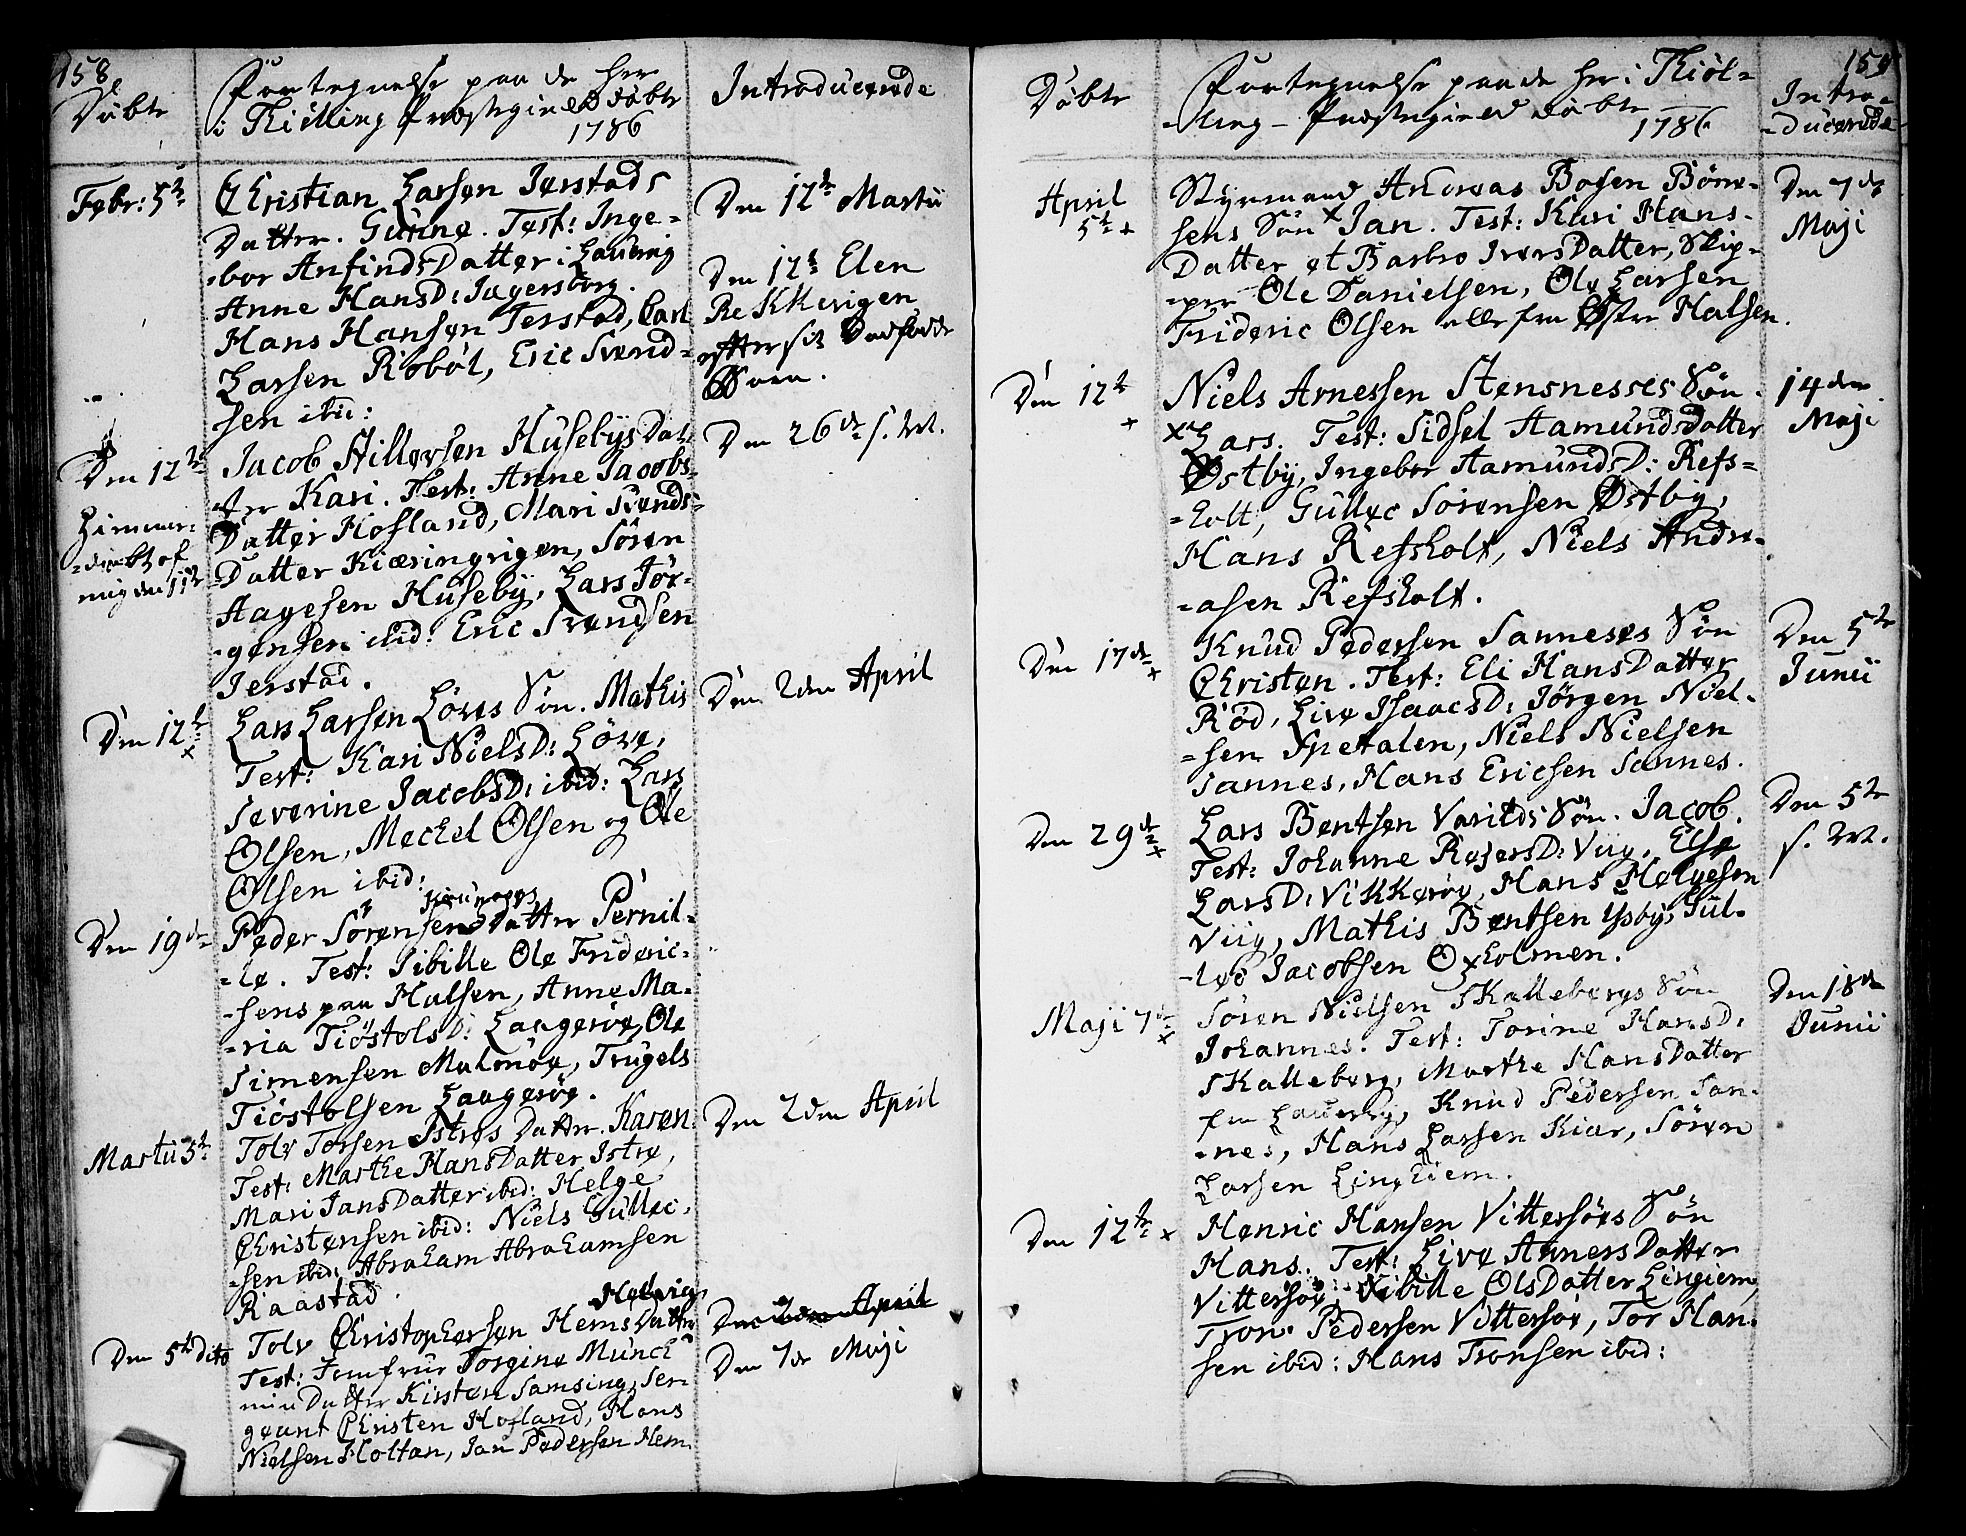 158
Døbte
Fortegnelse paa de her
i Thiølling Præstegield døbte
1786
Introducerede
Febr: 5te
Christian Larsen Jerstads
Datter. Gunne. Test: Inge-
-bor AnfindsDatter i Lauberg
Anne HansD: Jagersborg.
Hans Hansen Jerstad, Carl
Larsen Robøl, Eric Svend-
sen ibid:
Den 12te Martii
Den 12te Elen
Rekkevigen
efter sit
Barn.
Den 12te
Himmer-
-døbt af
mig den 11te
Jacob Hillersen Husebys Dat-
-ter Kari. Test: Anne Jacobs-
Datter Hofland, Mari Svends-
-Datter Kiæringvigen, Søren
Aagesen Huseby, Lars Jør-
-gensen ibid: Eric Svendsen
Jerstad.
Den 26de s. M.
Den 12te
x
Lars Larsen Løves Søn. Mathis
Test: Kari NielsD: Løve,
Severine JacobsD: ibid: Lars
Olsen, Mechel Olsen og Ole
Olsen ibid:
Den 2den April
Den 19de
Peder Sørensens Datter Pernil-
-le. Test: Sibille Ole Frideric-
-sens paa Halsen, Anne Ma-
-ria TiøstolsD: Laagerøe, Ole
Simensen Malmøe, Trugels
Tiøstolsen Laagerøe.
Martii 5te
Tolv Torsen Istres Datter. Karen.
Test: Marthe HansDatter Istre,
Mari JansDatter ibid: Helge
Christensen ibid: Niels Gullic-
-sen ibid: Abraham Abrahamsen
Raastad.
Den 2den April
Den 5te dito
Helvig
Tolv Christophersen Hems Datter
Test: Jomfrue Torgine Munch
min Datter Kirsten Samsing, Ser-
geant Christen Hofland, Hans
Nielsen Holtan, Jan Pedersen Hem.
Den 2den April
Den 7de Maji
159
Døbte
Fortegnelse paa de her i Thiøl-
-ling Præstegield døbte
1786
Intro-
-ducerede
April
5te x
Styrmand Andreas Bosen Børre-
sens Søn x Jan. Test: Kari Hans-
Datter et Barbro IversDatter, Skip-
-per Ole Danielsen, Ole Larsen
Frideric Olsen alle fra Østre Halsen.
Den 7de
Maji
Den 12te
x
Niels Arnessen Stensnesses Søn.
x Lars. Test: Sidsel AamundsDatter
Østby, Ingebor AamundsD: Refs-
-holt, Gullec Sørensen Østby,
Hans Refsholt, Niels Andre-
-asen Refsholt.
14den
Maji
Den 17de
x
Knud Pedersen Sanneses Søn
Christen. Test: Eli HansDatter
Rød, Live IsaacsD: Jørgen Niel-
-sen Spetalen, Niels Nielsen
Sannes, Hans Ericsen Sannes.
Den 5te
Junii
Den 29de
x
Lars Bentsen Varilds Søn. Jacob.
Test: Johanne RejersD: Viig, Else
LarsD: Vikkerøe, Hans Helgesen
Viig, Mathis Bentsen Ysby, Gul-
-lec Jacobsen Oxholmen.
Den 5te
s. M.
Maji 7de
x
Søren Nielsen Skallebergs Søn
Johannes. Test: Torine HansD:
Skalleberg, Marthe HansDatter
fra Lauberg, Knud Pedersen San-
-nes, Hans Larsen Kiær, Søren
Larsen Linghiem.
Den 18de
Junii
Den 12te x
Henric Hansen Vittersøes Søn
Hans. Test: Live AnnersDatter
Vittersøe, Sibille OlsDatter Lingiem,
Tron Pedersen Vittersøe, Tor Han-
sen ibid: Hans Tronsen ibid: